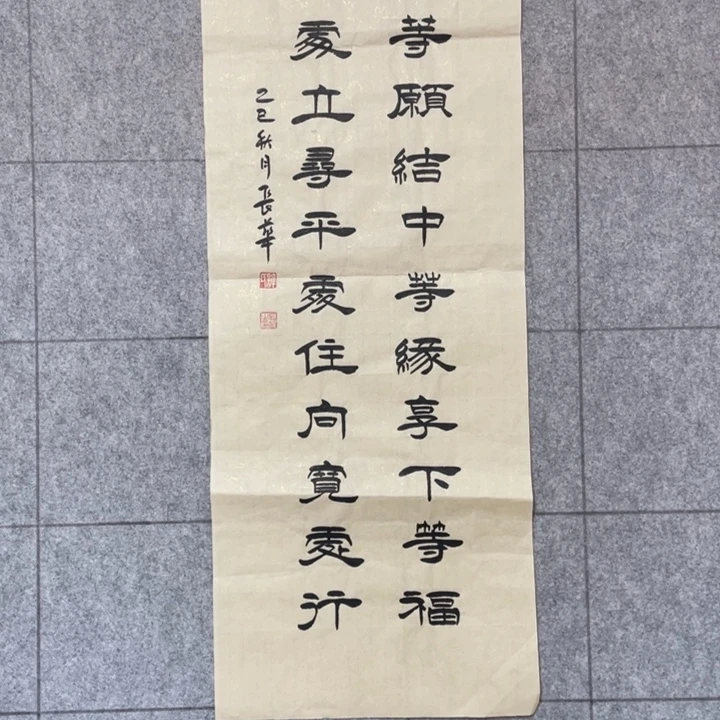 等願結中等緣享下等福
處立尋平處住向寬處行
乙巳秋月長華